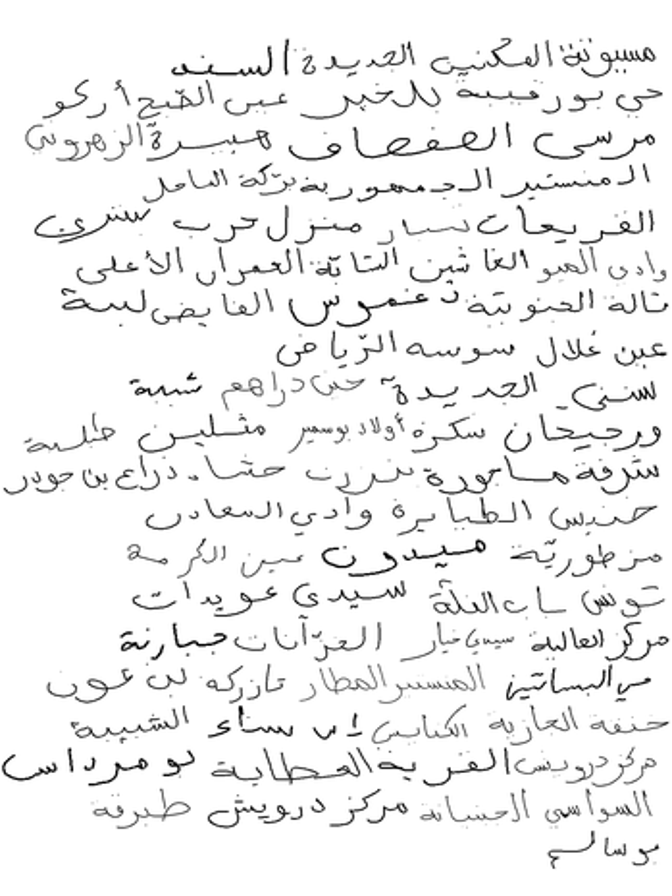 مسيوتة المكنين الجديدة السند
حي بورقيبة بلخير عين الضبح أركو
مرسى الصفصاف هبيرة الزهروني
المنستير الجمهورية بركة الساحل
القريعات يسار منزل حرب بشري
وادي الغاشين الشابة العمران الأعلى
تالة الجنوبية دغموس الفايض لبنة
عين غلال سوسة الرياض
الجديدة حي دراهم شبيبة
ورجيحان سكرة أولاد بوسمير مثلين طبلبة
شرفة بنزرت حشاد ذراع بن جودر
خنيس الطبابرة وادي السعادي
مزطورية ميدون عين الكرمة
تونس باب العلة سيدي عويدات
مركز العالية سيدي خيار العزآنات جبارنة
حي البساتين المنستير المطار تازركه بن عون
خنقة الجازية سناء الشبيبة
مركز درويش القرية العطاية بومرداس
السواسي الحنشانة مركز درويش طبرقة
بوسالم